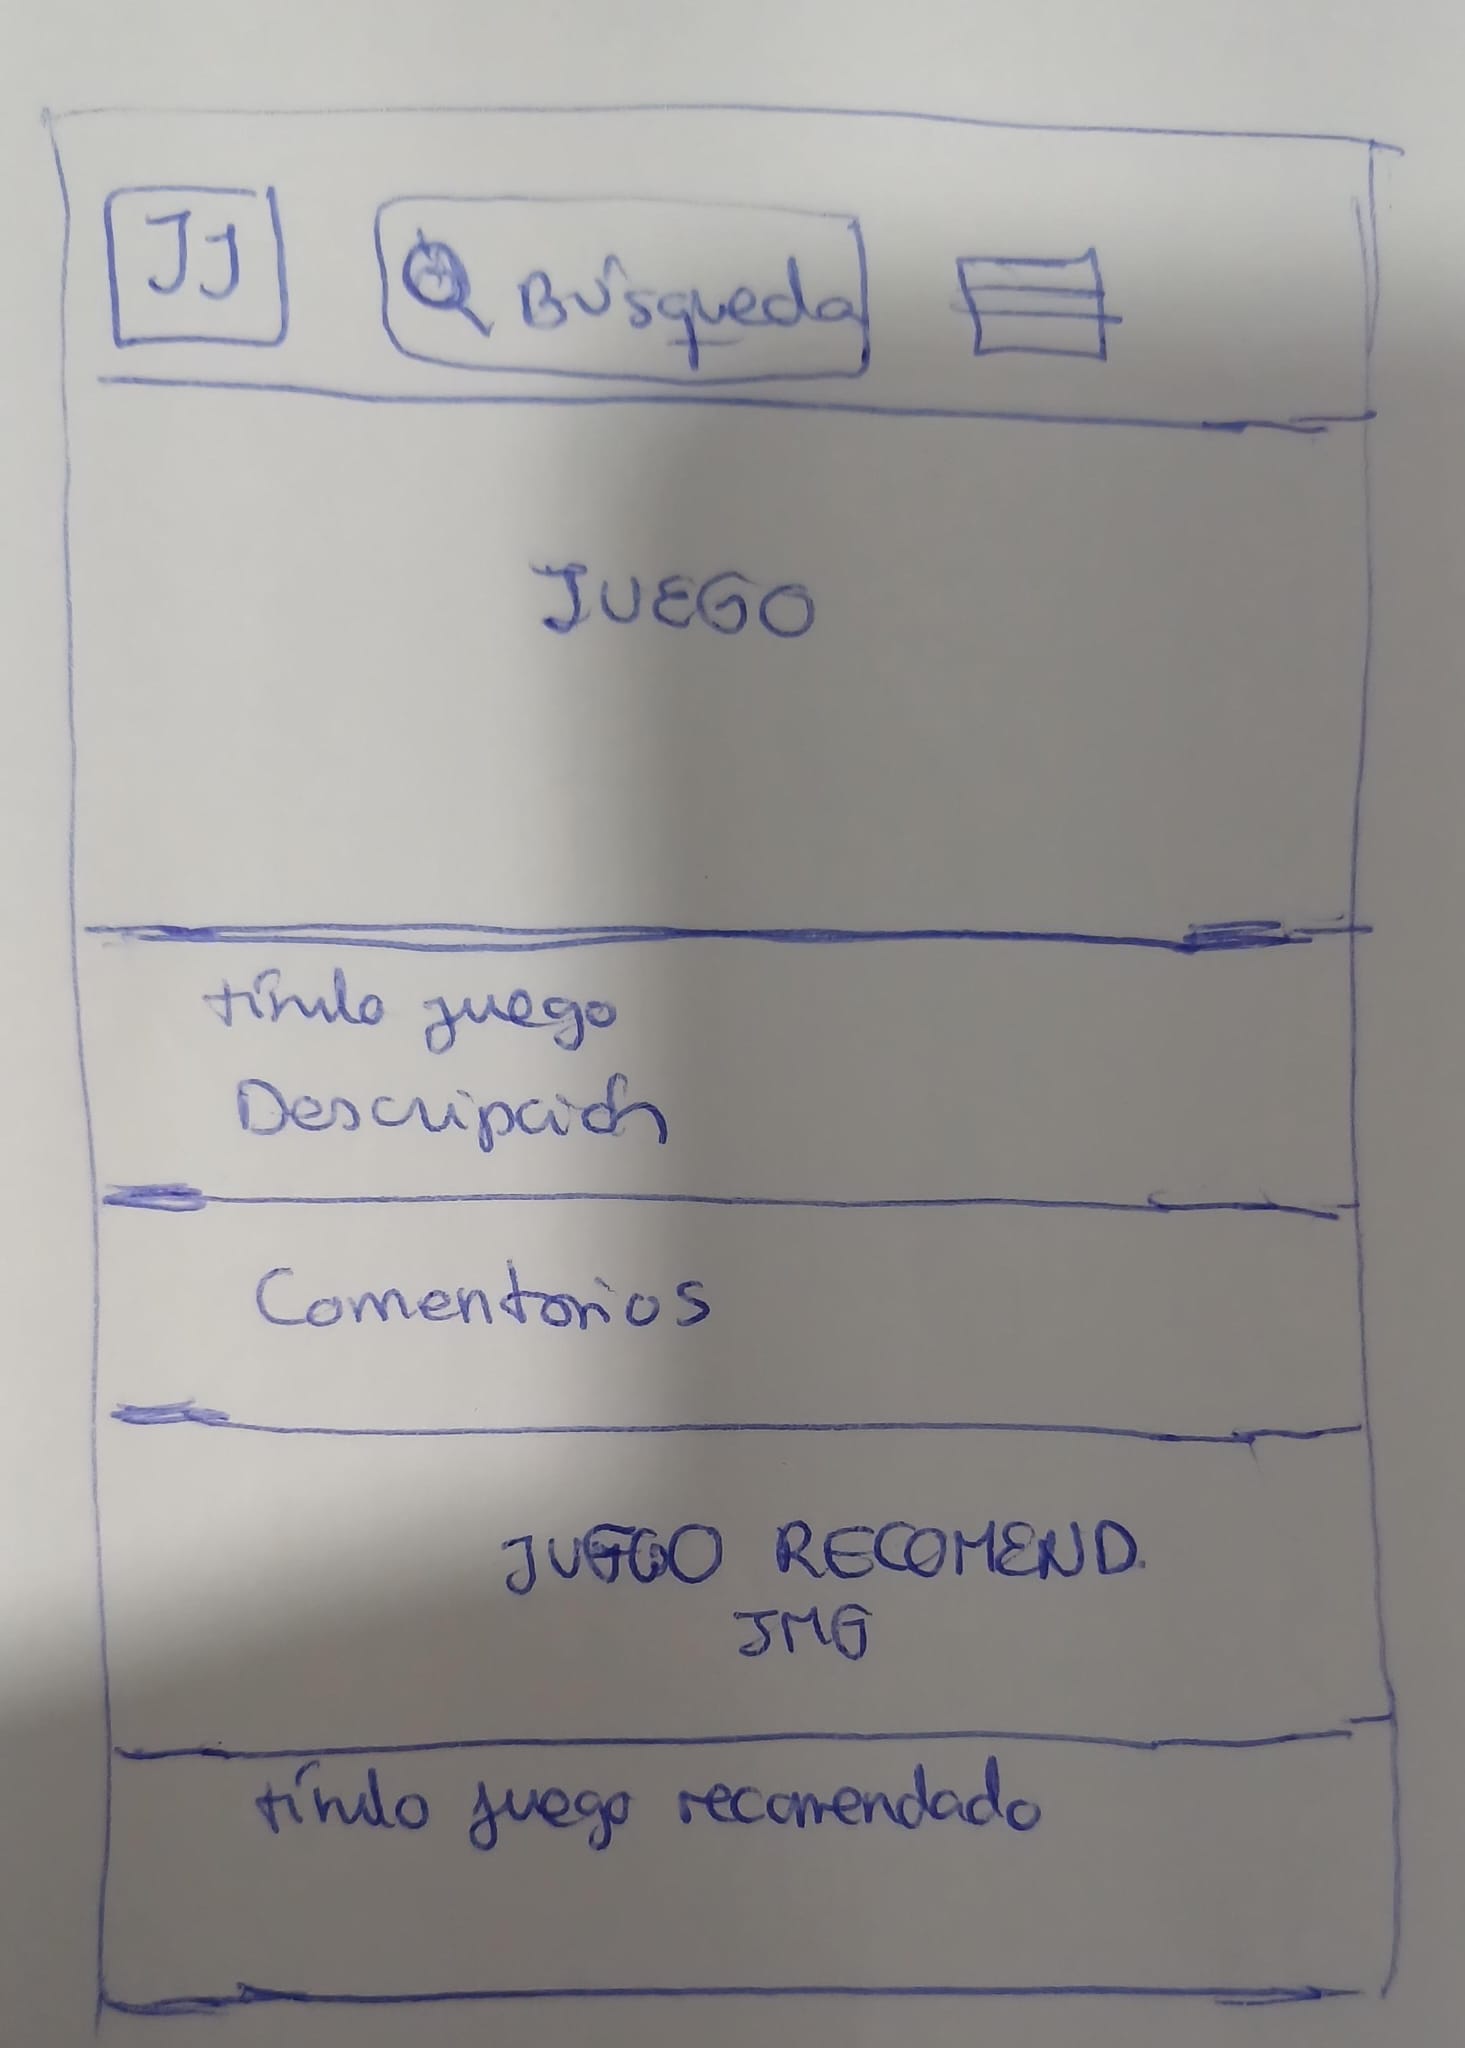 JJ
Búsqueda
JUEGO
título juego
Descripción
Comentarios
JUEGO RECOMEND.
IMG
título juego recomendado